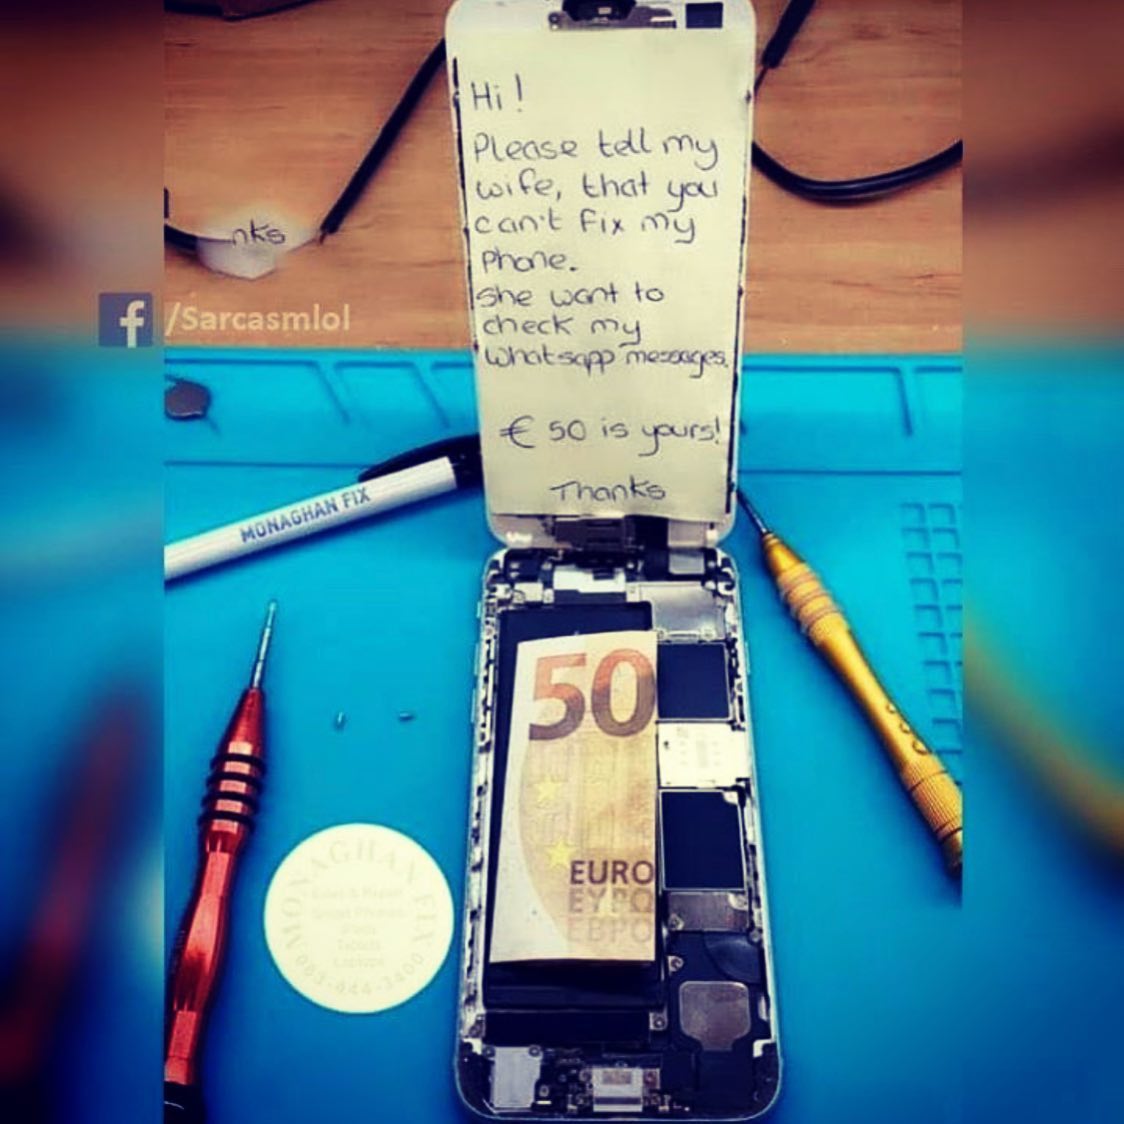 Hi!
Please tell my
wife, that you
can't fix my
phone.
she want to
check my
whatsapp messages.
€ 50 is yours!
Thanks
nks
f/Sarcasmlol
MONAGHAN FIX
50
EURO
ΕΥΡΩ
ЕВРО
MONAGHAN FIX
Sales & Repair
Smart Phones
Tablets
Laptops